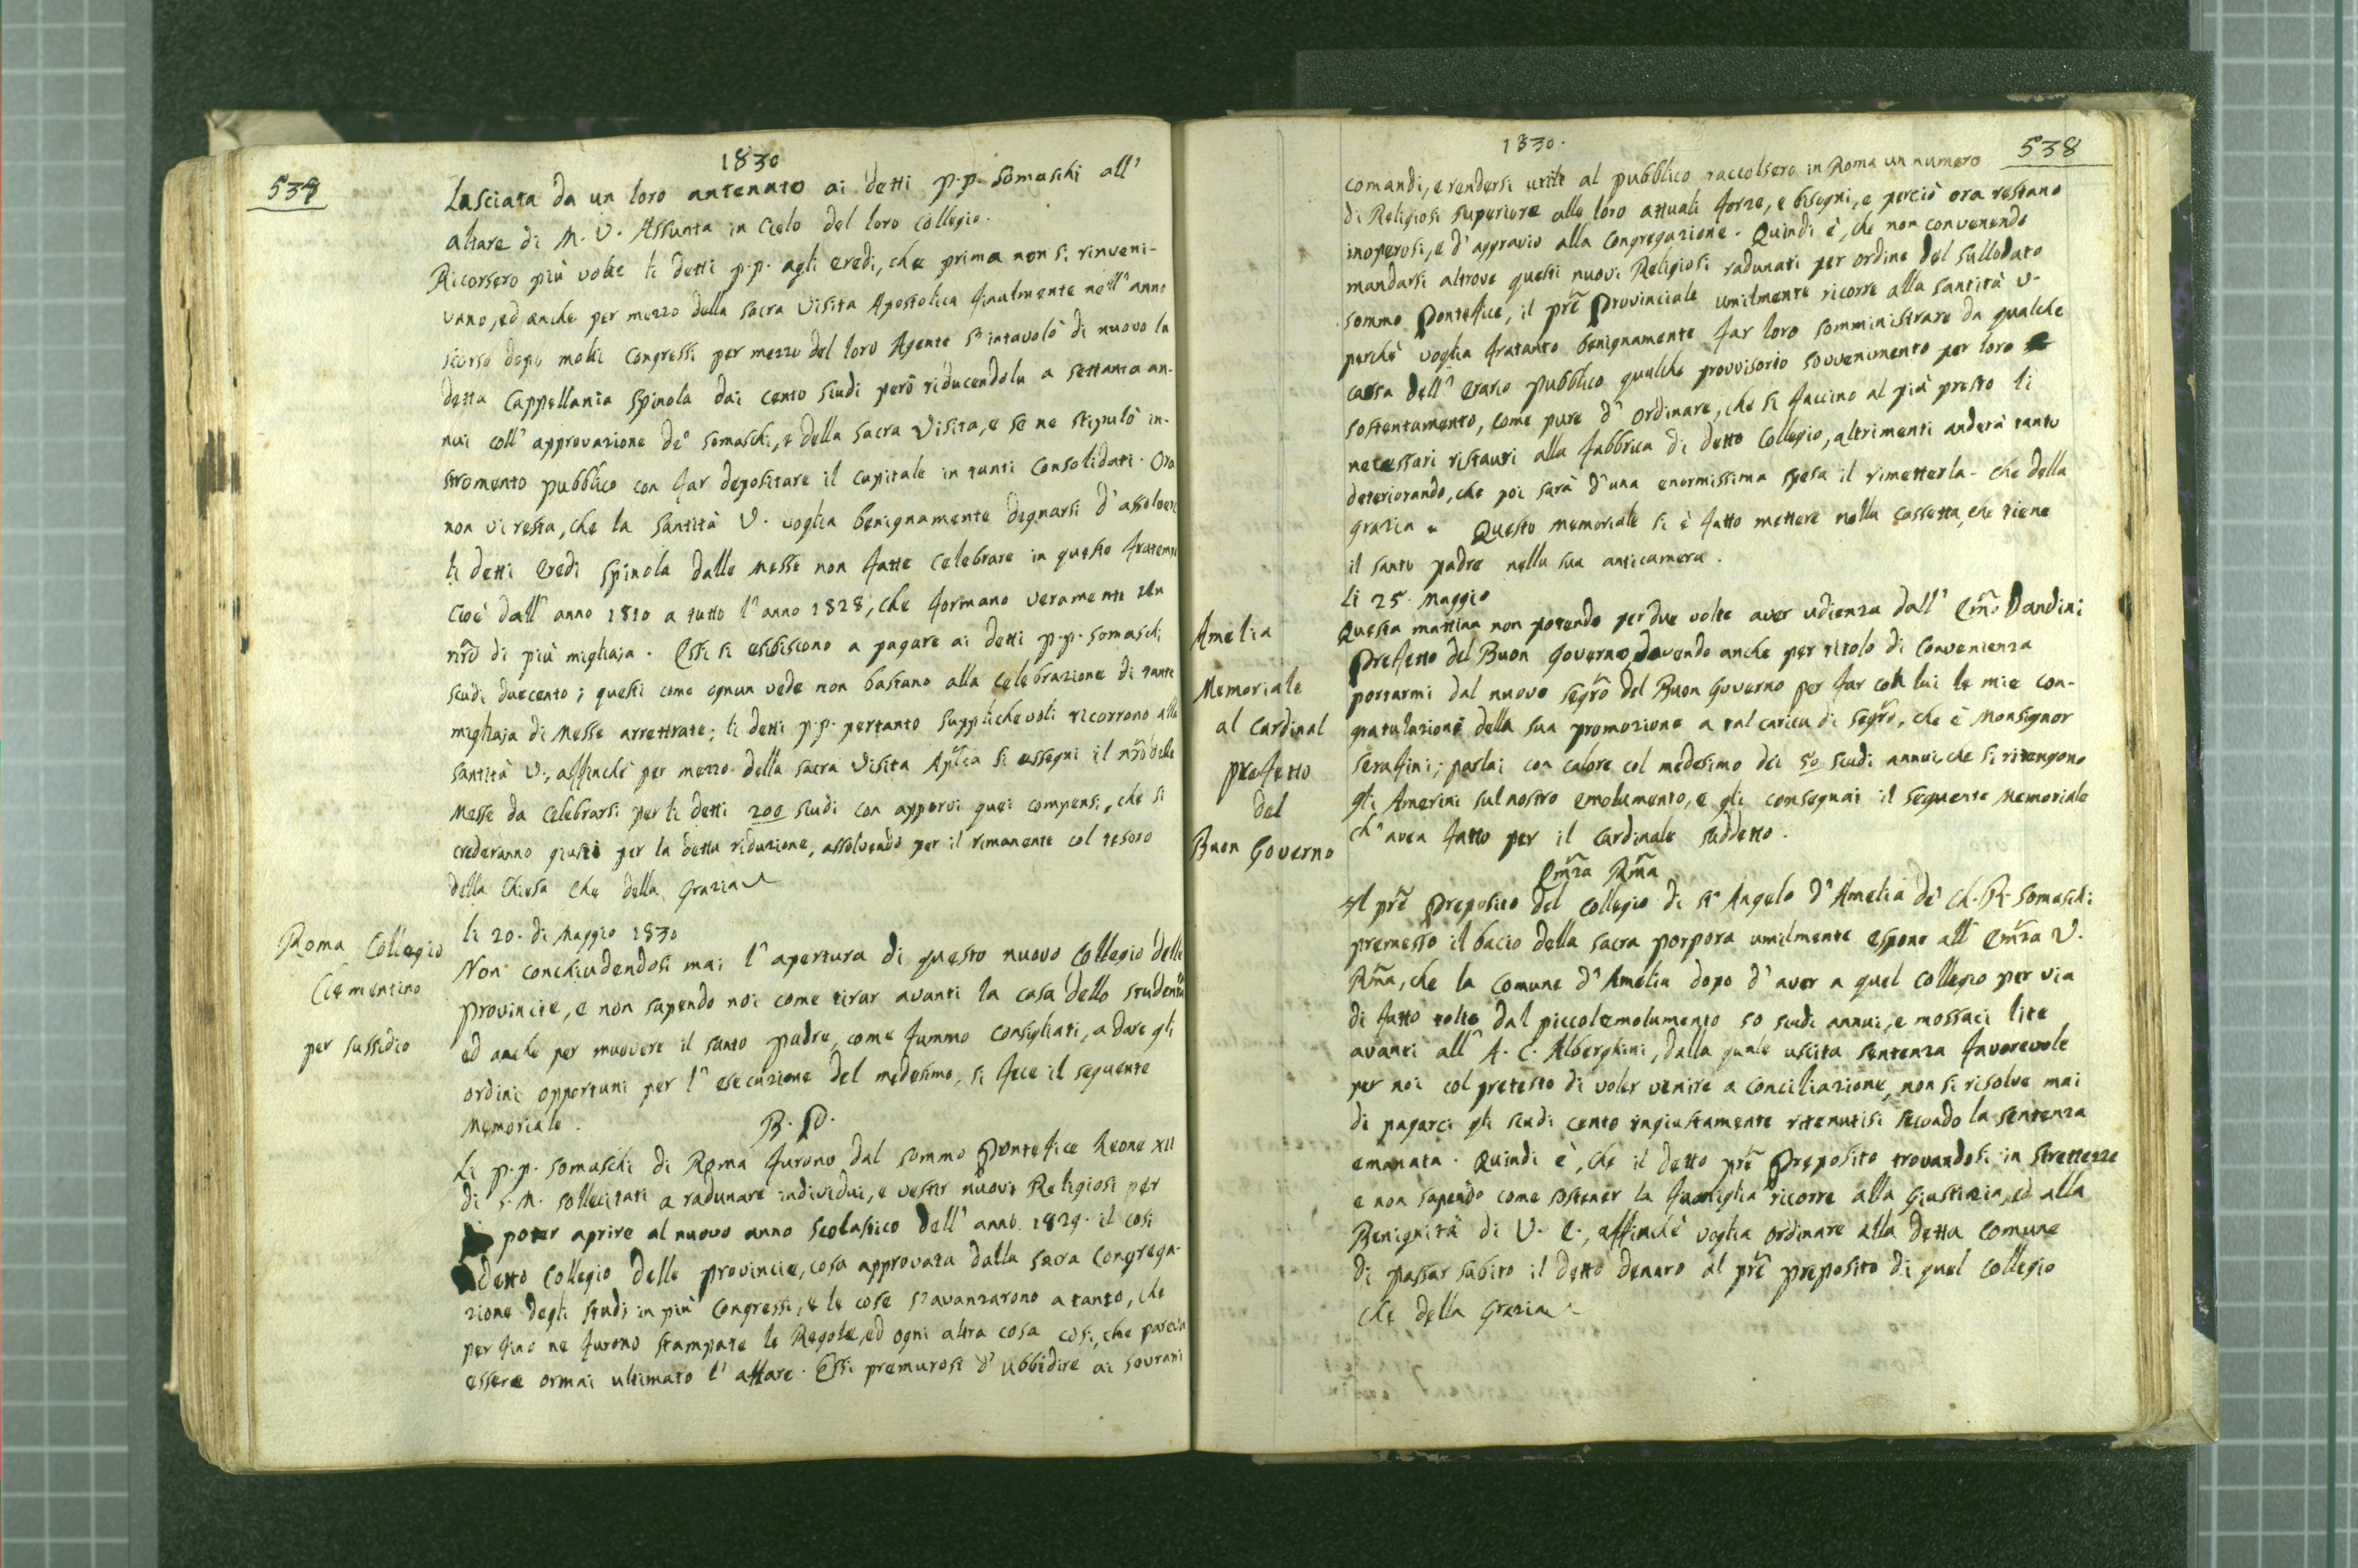 1830
538
Lasciata da un loro antenato ai detti P.P. Somaschi all'
altare di M. V. Assunta in Cielo del loro collegio.
Ricorsero più volte li detti P.P. agli eredi, che prima non si rinveni-
vano, ed anche per mezzo della Sacra Visita Apostolica finalmente nell'anno
scorso dopo molti congressi per mezzo del loro Agente s'intavolò di nuovo la
detta Cappellania Spinola dai cento scudi però riducendola a settanta an-
nui coll'approvazione de' Somaschi, e della Sacra Visita, e se ne stipulò in-
stromento pubblico con far depositare il capitale in tanti Consolidati. Ora
non vi resta, che la Santità V. voglia benignamente degnarsi d'assolvere
li detti eredi Spinola dalle Messe non fatte celebrare in questo fratempo
cioè dall'anno 1810 a tutto l'anno 1828, che formano veramente un
nr̃o di più migliaja. Essi si esibiscono a pagare ai detti P.P. Somaschi
scudi duecento; questi come ognun vede non bastano alla celebrazione di tante
migliaja di Messe arrettrate; li detti P.P. pertanto supplichevoli ricorrono alla
Santità V., affinchè per mezzo della Sacra Visita Ap̃lica si assegni il nr̃o delle
Messe da celebrarsi per li detti 200 scudi con apporvi quei compensi, che si
crederanno giusti per la detta riduzione, assolvendo per il rimanente col tesoro
della Chiesa Che della Grazia
li 20. di Maggio 1830
Roma Collegio
Clementino
per sussidio
Non conchiudendosi mai l'apertura di questo nuovo Collegio delle
Provincie, e non sapendo noi come tirar avanti la casa dello studentato
ed anche per muovere il Santo Padre, come fummo consigliati, a dare gli
ordini opportuni per l'esecuzione del medesimo, si fece il seguente
Memoriale.
B. P.
Li P.P. Somaschi di Roma furono dal Sommo Pontefice Leone XII
di S. M. sollecitati a radunare individui, e vestir nuovi Religiosi per
poter aprire al nuovo anno scolastico dell'anno 1829. il così
detto Collegio delle Provincie, cosa approvata dalla Sacra Congrega-
zione degli Studj in più Congressi, e le cose s'avanzarono a tanto, che
per fino ne furono stampate le Regole, ed ogni altra cosa così, che pareva
essere ormai ultimato l'affare. Essi premurosi d'ubbidire ai sovrani
1830.
538
comandi, e rendersi utili al pubblico raccolsero in Roma un numero
di Religiosi superiore alle loro attuali forze, e bisogni, e perciò ora restano
inoperosi, e d'aggravio alla Congregazione. Quindi è, che non convenendo
mandarsi altrove questi nuovi Religiosi radunati per ordine del sullodato
Sommo Pontefice, il pr̃e Provinciale umilmente ricorre alla Santità V.
perchè voglia fratanto benignamente far loro somministrare da qualche
cassa dell'Erario pubblico qualche provvisorio sovvenimento per loro
sostentamento, come pure d'ordinare, che si faccino al più presto li
necessari ristauri alla fabbrica di detto Collegio, altrimenti anderà tanto
deteriorando, che poi sarà d'una enormissima spesa il rimetterla. Che della
Grazia. Questo Memoriale si è fatto mettere nella cassetta, che tiene
il Santo Padre nella sua anticamera.
li 25. Maggio
Amelia
Memoriale
al Cardinal
Prefetto
del
Buon Governo
Questa mattina non potendo per due volte aver udienza dall'Em̃o Dandini
Prefetto del Buon Governo, dovendo anche per titolo di convenienza
portarmi dal nuovo Segr̃o del Buon Governo per far con lui le mie con-
gratulazioni della sua promozione a tal carica di Segr̃o, che è Monsignor
Serafini; parlai con calore col medesimo dei 50 scudi annui, che si ritengono
gli Amerini sul nostro emolumento, e gli consegnai il seguente Memoriale
ch'avea fatto per il Cardinale suddetto.
Em̃za Rm̃a
Il pr̃e Preposito del Collegio di S. Angelo d'Amelia de' Ch. R. Somaschi
premesso il bacio della Sacra Porpora umilmente espone all'Em̃za V.
Rm̃a, che la Comune d'Amelia dopo d'aver a quel Collegio per via
di fatto tolto dal piccolemolumento 50 scudi annui, e mossaci lite
avanti all'A. C. Alberghini, dalla quale uscita sentenza favorevole
per noi col pretesto di voler venire a conciliazione, non si risolve mai
di pagarci gli scudi cento ingiustamente ritenutisi secondo la sentenza
emanata. Quindi è, che il detto pr̃e Preposito trovandosi in strettezze
e non sapendo come sostener la famiglia ricorre alla Giustizia, ed alla
Benignità di V. E., affinchè voglia ordinare alla detta Comune
di passar subito il detto denaro al pr̃e Preposito di quel Collegio
Che della Grazia